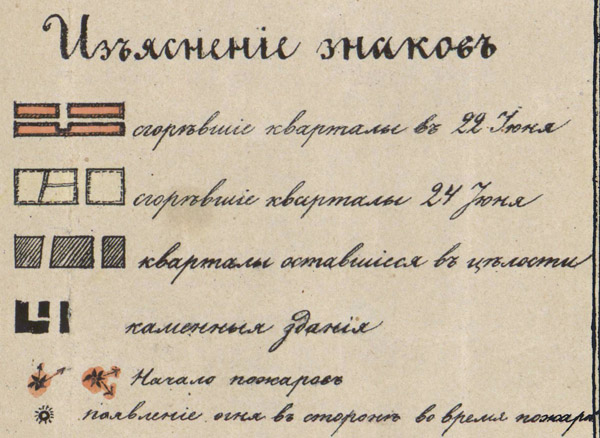 Изъясненіе знаковъ
сгорѣвшіе кварталы въ 22 Іюня
сгорѣвшіе кварталы 24 Іюня
кварталы оставшіеся въ цѣлости
каменныя зданія
Начало пожаровъ
появленіе огня въ сторонѣ во время пожара